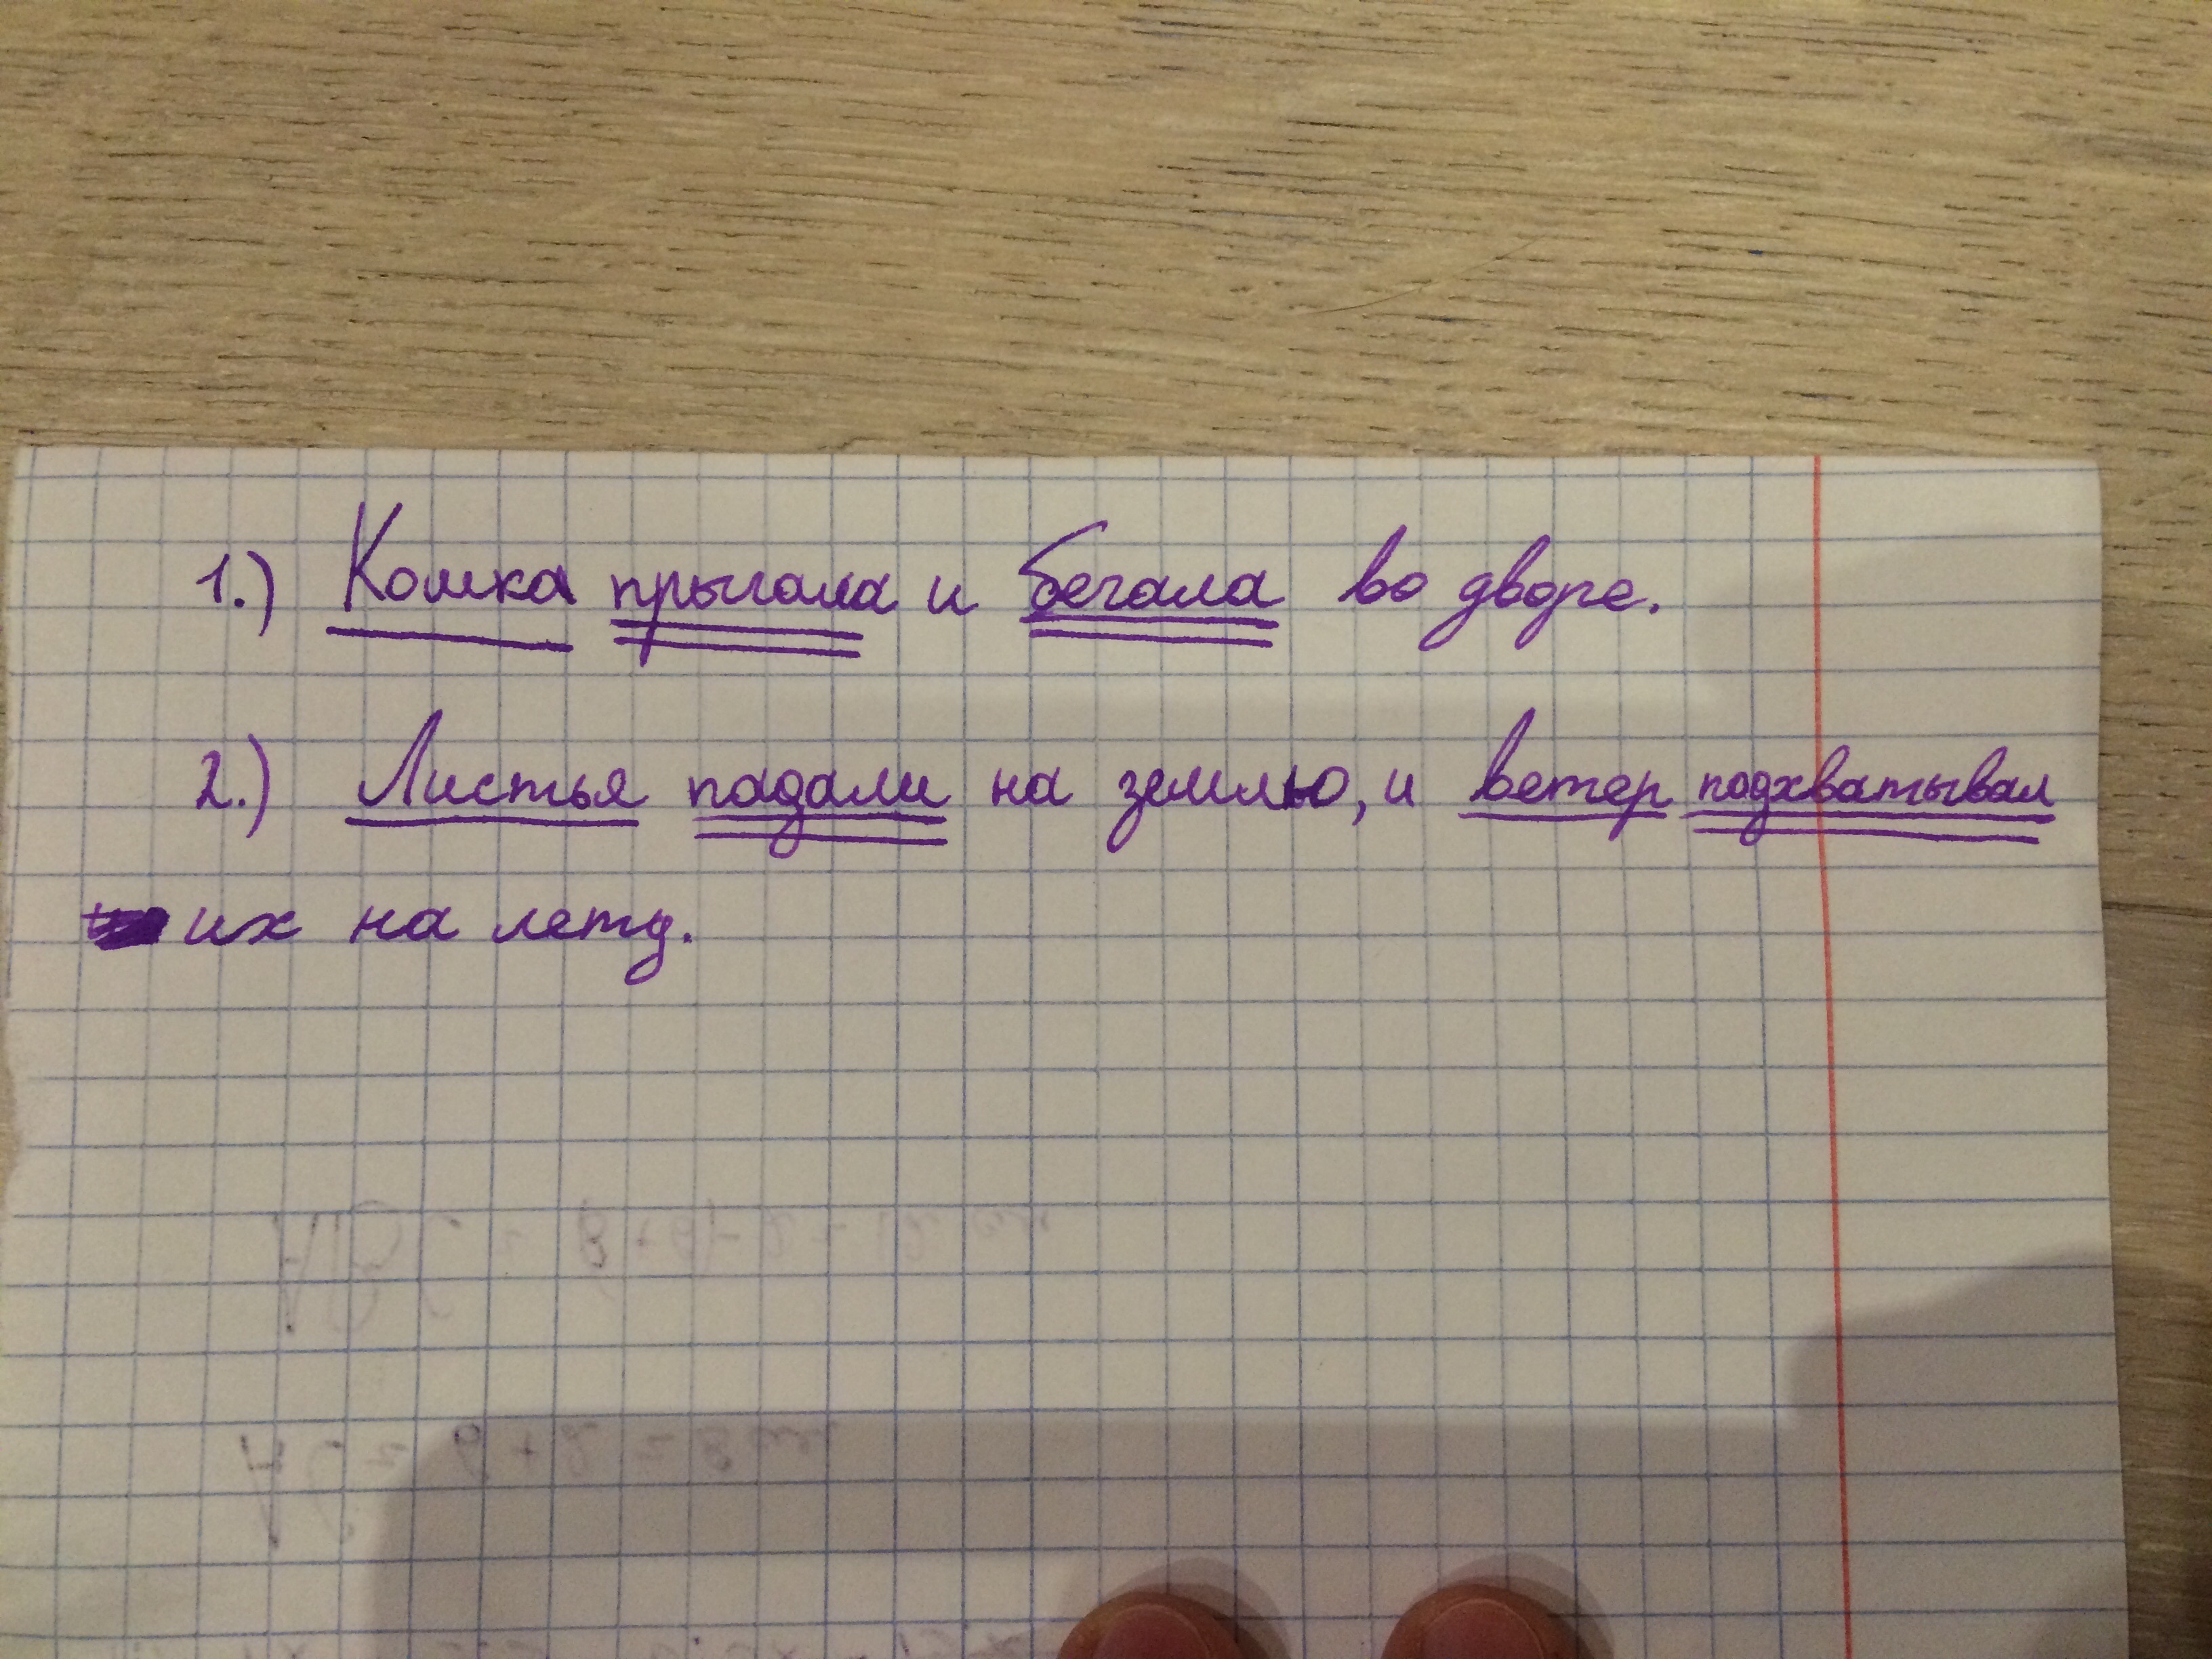 1.) Кошка прыгала и бегала во дворе.
2.) Листья падали на землю, и ветер подхватывал
их на лету.